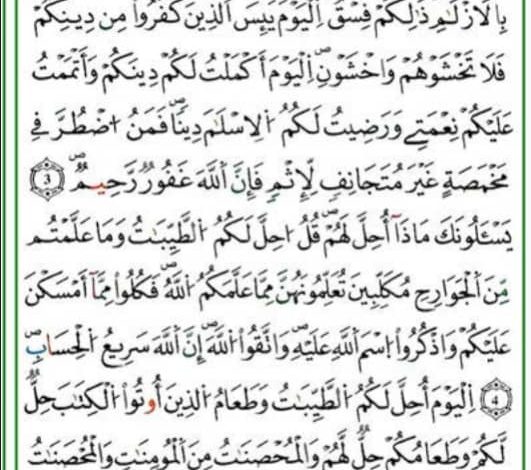 بِالَازْلَٰمِ ذَٰلِكُمْ فِسْقٌ اِلْيَوْمَ يَئِسَ اَلذِينَ كَفَرُواْ مِن دِينِكُمْ
فَلَا تَخْشَوْهُمْ وَاخْشَوْنِ اِلْيَوْمَ أَكْمَلْتُ لَكُمْ دِينَكُمْ وَأَتْمَمْتُ
عَلَيْكُمْ نِعْمَتِے وَرَضِيتُ لَكُمُ اُلِاسْلَٰمَ دِيناٗ فَمَنُ اُضْطُرَّ فِے
مَخْمَصَةٍ غَيْرَ مُتَجَانِفٖ لِّإِثْمٖ فَإِنَّ اَللَّهَ غَفُورٞ رَّحِيمٞ 3
يَسْـَٔلُونَكَ مَاذَا أُحِلَّ لَهُمْ قُلُ احِلَّ لَكُمُ اُلطَّيِّبَٰتُ وَمَا عَلَّمْتُم
مِّنَ اَلْجَوَارِحِ مُكَلِّبِينَ تُعَلِّمُونَهُنَّ مِمَّا عَلَّمَكُمُ اُللَّهُ فَكُلُواْ مِمَّا أَمْسَكْنَ
عَلَيْكُمْ وَاذْكُرُواْ اِسْمَ اَللَّهِ عَلَيْهِ وَاتَّقُواْ اُللَّهَ إِنَّ اَللَّهَ سَرِيعُ اُلْحِسَابِ
4 اِلْيَوْمَ أُحِلَّ لَكُمُ اُلطَّيِّبَٰتُ وَطَعَامُ اُلذِينَ أُوتُواْ اُلْكِتَٰبَ حِلّٞ
لَّكُمْ وَطَعَامُكُمْ حِلّٞ لَّهُمْ وَالْمُحْصَنَٰتُ مِنَ اَلْمُومِنَٰتِ وَالْمُحْصَنَٰتُ